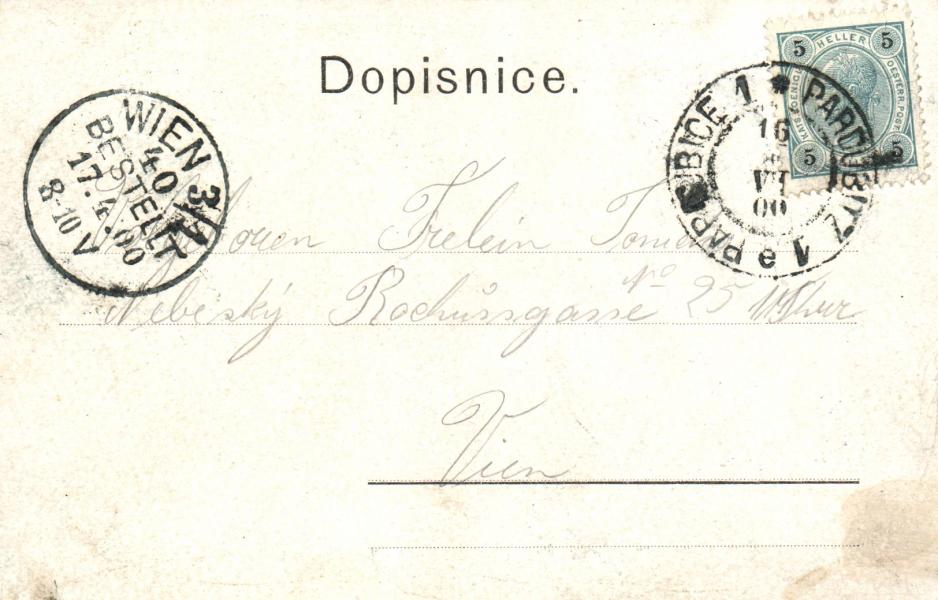 Dopisnice.
5 HELLER 5
KAIS. KOENIGL. OESTERR. POST.
5 5
PARDUBICE 1 * PARDUBITZ 1
16
00
e
WIEN 3/1
40
BESTELLT
17.4.00
8-10V
Frelein
Nebeský Rochusgasse No 25
Vien